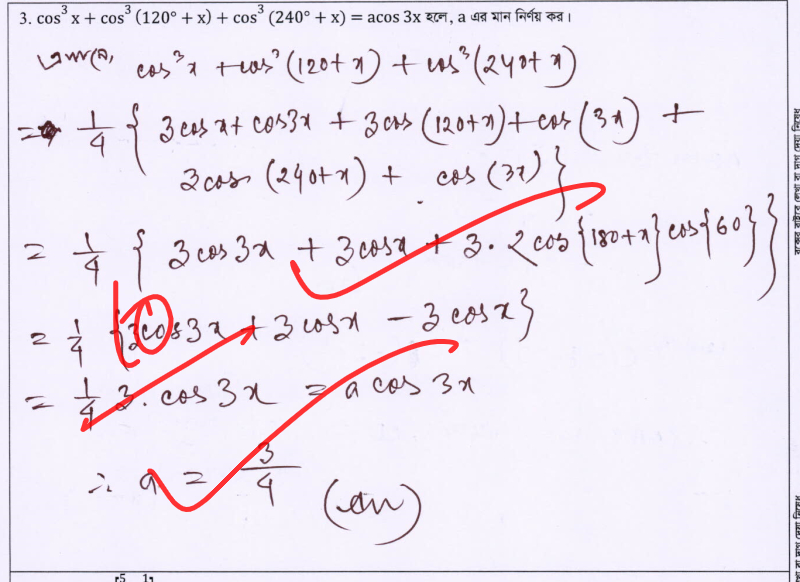 3. cos³ x + cos³ (120° + x) + cos³ (240° + x) = acos 3x হলে, a এর মান নির্ণয় কর।
cos³x + cos³(120+x) + cos³(240+x)
= 1/4 { 3cosx + cos3x + 3cos(120+x) + cos(3x) +
3cos(240+x) + cos(3x) }
= 1/4 { 3cos3x + 3cosx + 3·2cos{180+x}cos{60} }
= 1/4 {3cos3x + 3cosx - 3cosx}
= 1/4 3.cos3x = a cos 3x
∴ a = 3/4 (an)